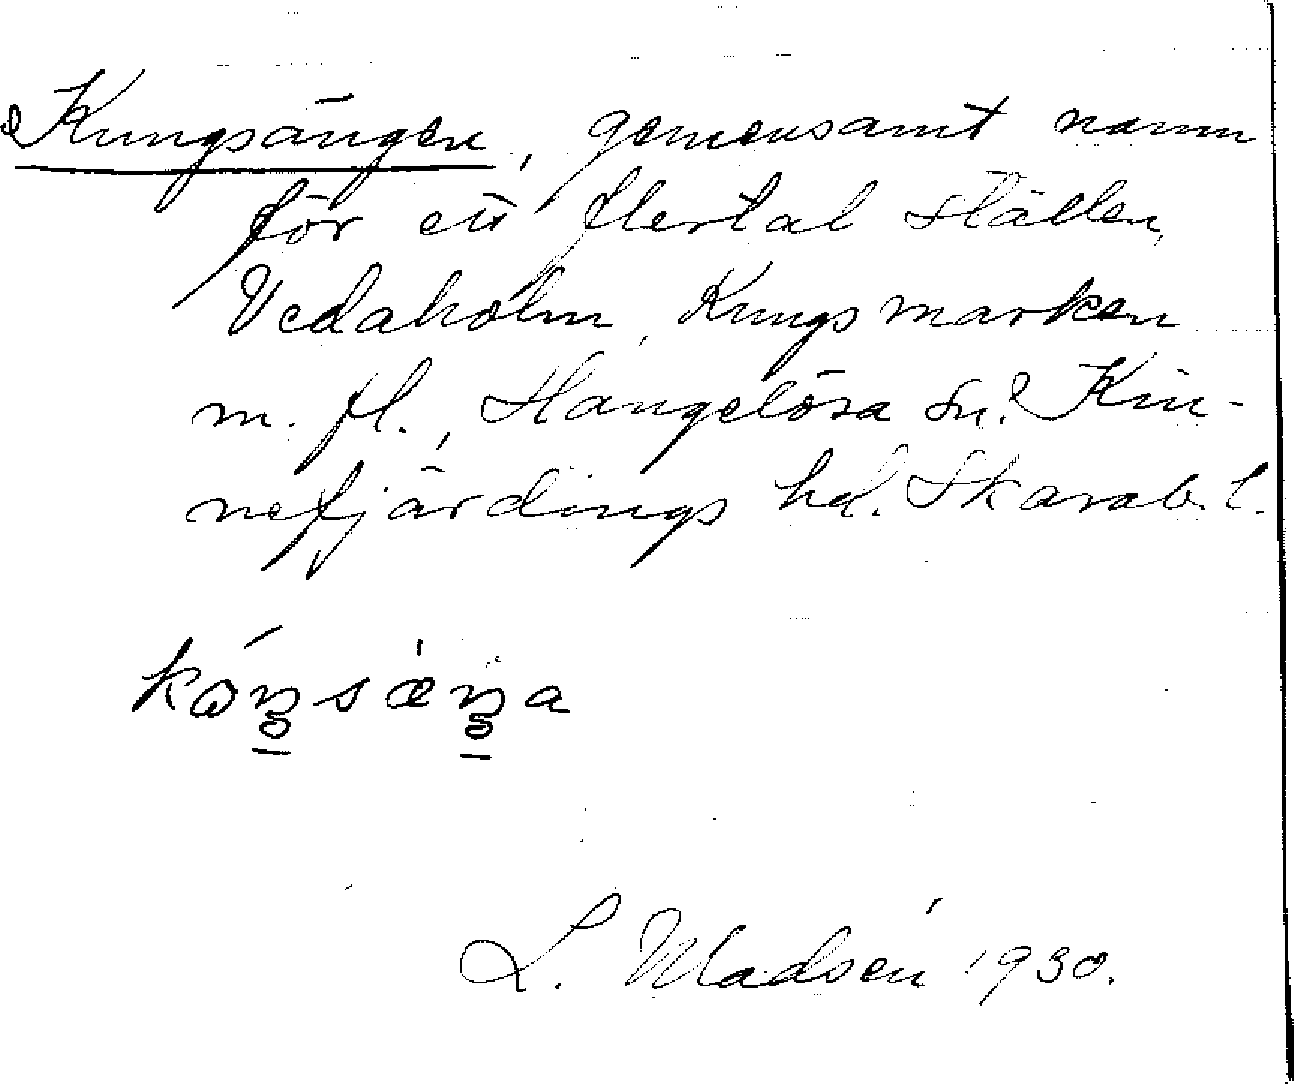 Kungsängen, gemensamt namn
för ett flertal ställen,
Vedaholm, Kungsmarken
m. fl., Hangelösa sn. Kin-
nefjärdings hd. Skarab. l.
L. Madsén 1930.